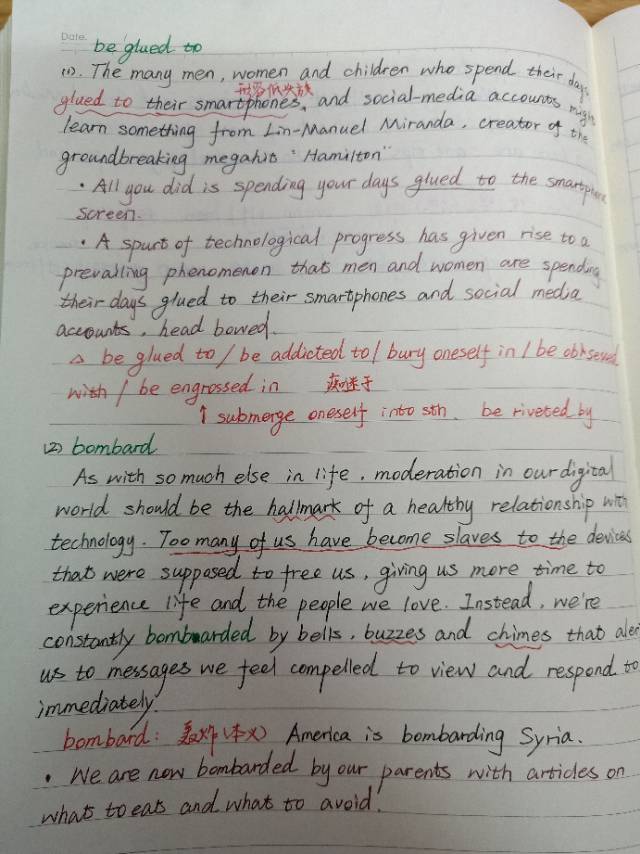 Date.
be glued to
(1). The many men, women and children who spend their days
形容低头族
glued to their smartphones, and social-media accounts might
learn something from Lin-Manuel Miranda, creator of the
groundbreaking megahit "Hamilton"
· All you did is spending your days glued to the smartphone
screen.
· A spurt of technological progress has given rise to a
prevailing phenomenon that men and women are spending
their days glued to their smartphones and social media
accounts, head bowed.
△ be glued to / be addicted to / bury oneself in / be obsessed
with / be engrossed in 痴迷于
↑ submerge oneself into sth. be riveted by
(2) bombard
As with so much else in life, moderation in our digital
world should be the hallmark of a healthy relationship with
technology. Too many of us have become slaves to the devices
that were supposed to free us, giving us more time to
experience life and the people we love. Instead, we're
constantly bombarded by bells, buzzes and chimes that alert
us to messages we feel compelled to view and respond to
immediately.
bombard: 轰炸(本义) America is bombarding Syria.
· We are now bombarded by our parents with articles on
what to eat and what to avoid.